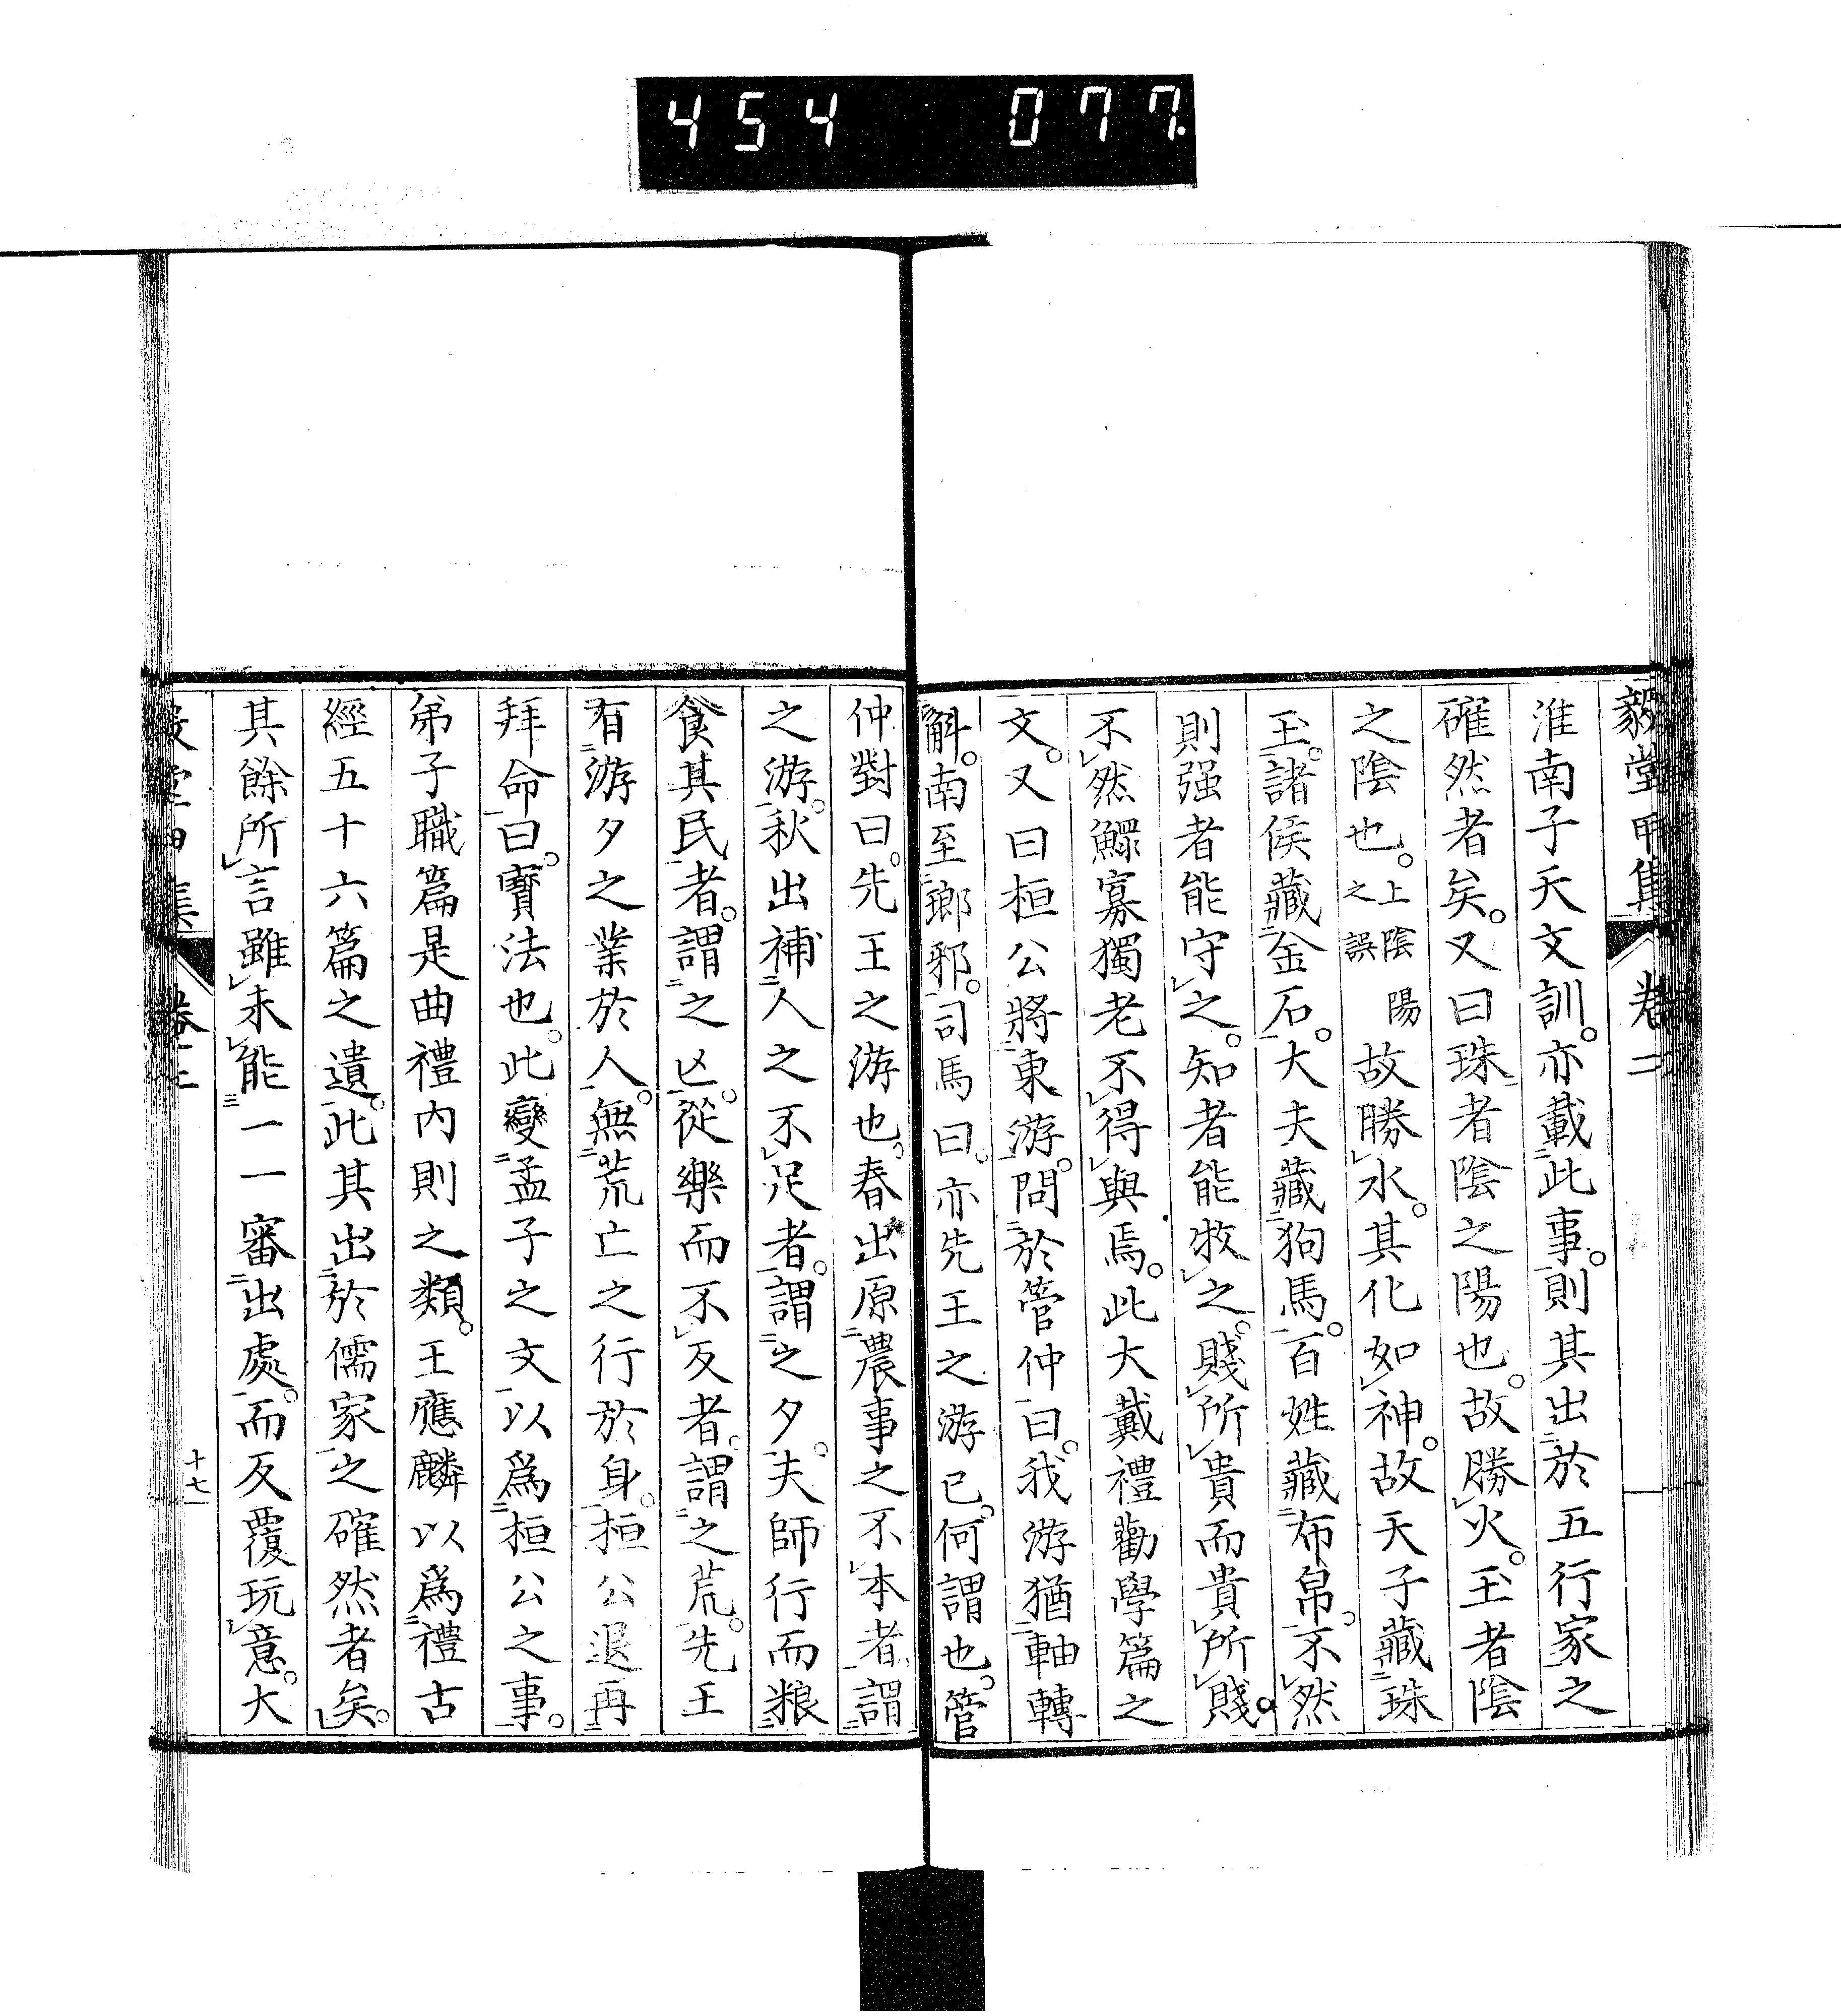 454 077.
毅堂甲集 卷二
淮南子天文訓。亦載二此事。則其出二於五行家之
確然者矣。又曰珠者陰之陽也。故勝レ火。玉者陰
之陰也。上陰陽之誤故勝レ水。其化如レ神。故天子藏二珠
玉。諸侯藏二金石。大夫藏二狗馬。百姓藏二布帛。不レ然
則强者能守レ之。知者能牧レ之。賤レ所レ貴而貴レ所レ賤。
不レ然鰥寡獨老不レ得レ與焉。此大戴禮勸學篇之
文。又曰桓公將二東游。問二於管仲一曰。我游猶二軸轉
斛。南至二瑯邪。司馬曰。亦先王之游已。何謂也。管
仲對曰。先王之游也。春出原二農事之不レ本者一謂二
之游。秋出補二人之不レ足者。謂二之夕。夫師行而粮二
食其民一者。謂二之亾。從樂而不レ反者。謂二之荒。先王
有二游夕之業於人。無二荒亡之行於身。桓公退再二
拜命一曰。寶法也。此變二孟子之文一以爲二桓公之事。
弟子職篇是曲禮內則之類。王應麟以爲二禮古
經五十六篇之遺。此其出二於儒家一之確然者矣。
其餘所レ言雖レ未レ能三一一審二出處。而反覆玩レ意。大
十七